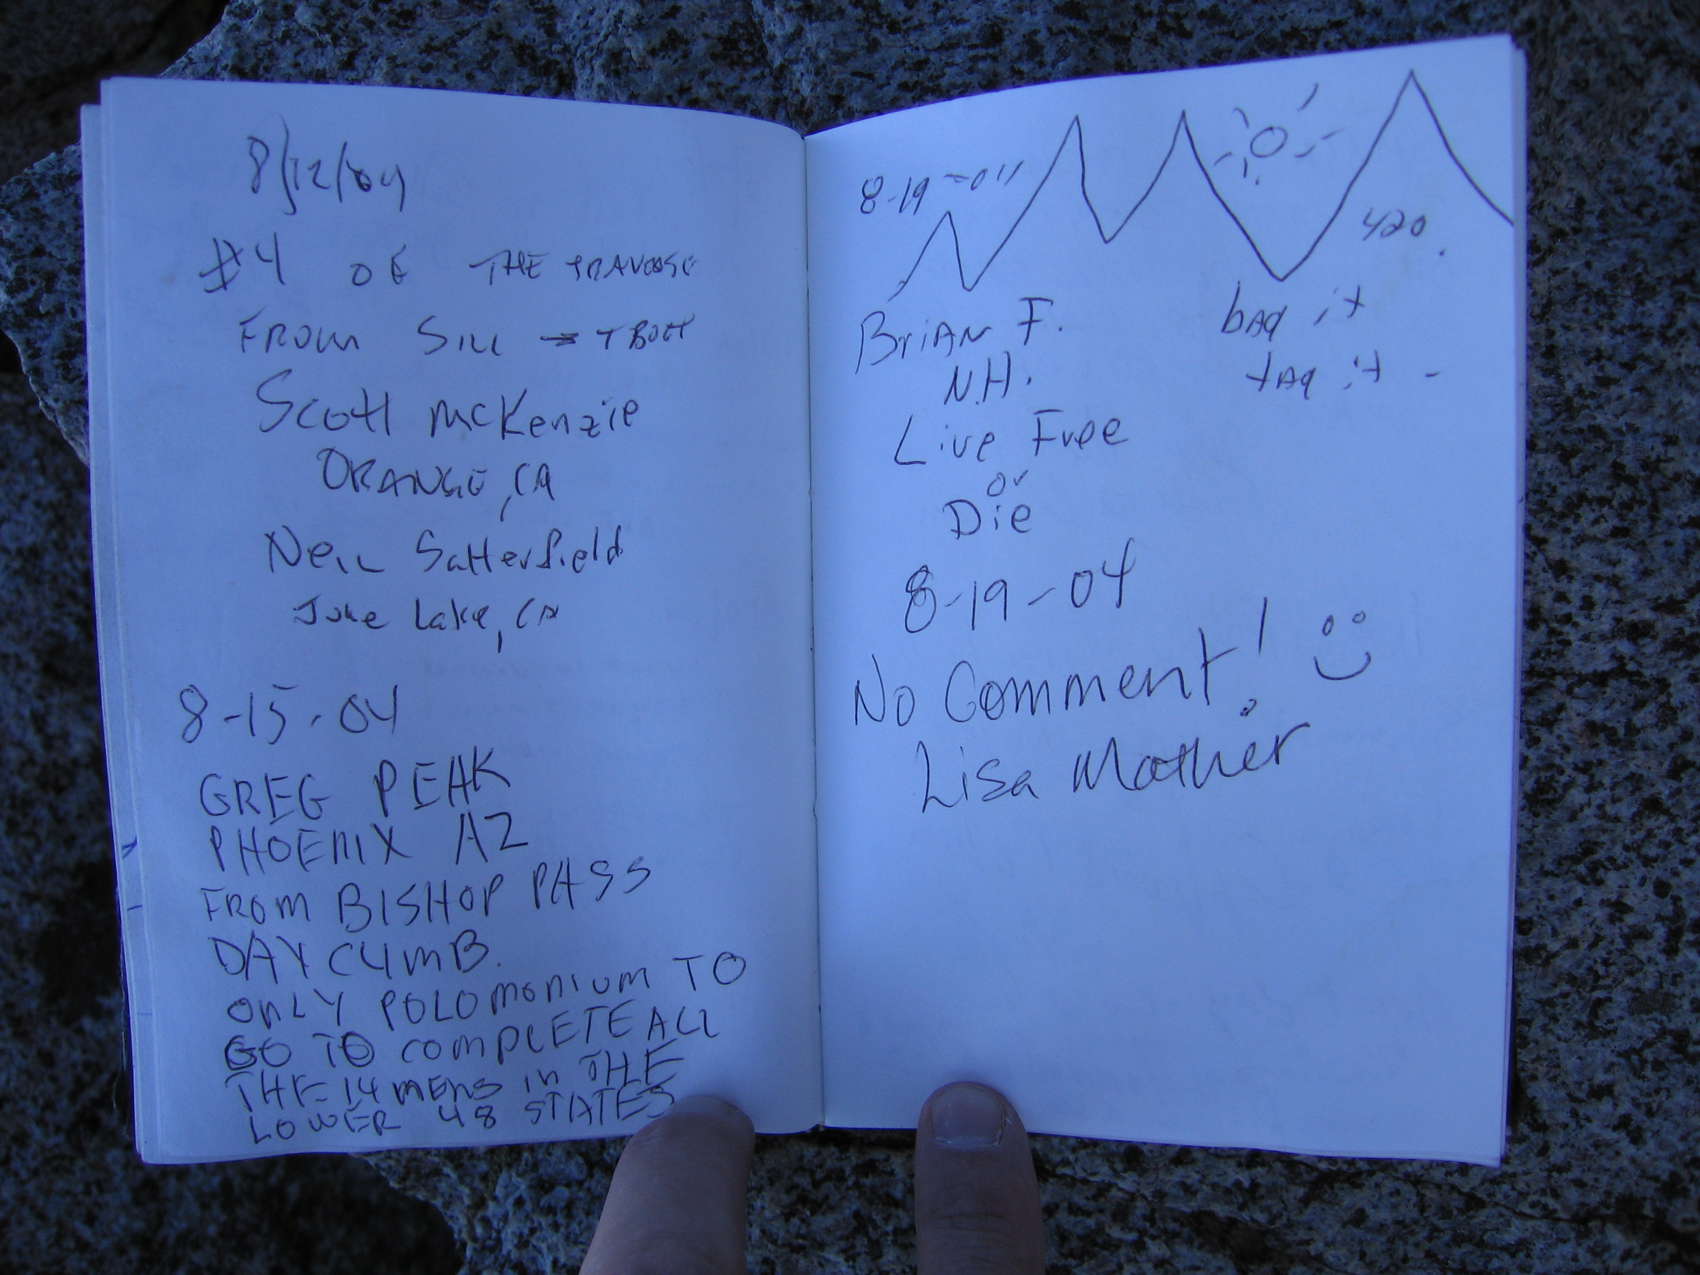 8/12/04
#4 OF THE TRAVERSE
FROM SILL → TBOLT
Scott McKenzie
ORANGE, CA
Neil Satterfield
June Lake, CA
8-15-04
GREG PEAK
PHOENIX AZ
FROM BISHOP PASS
DAY CLIMB.
ONLY POLOMONIUM TO
GO TO COMPLETE ALL
THE 14 MENS IN THE
LOWER 48 STATES
8-19-04
420
Brian F.
N.H.
Live Free
or
Die
bag it
tag it -
8-19-04
No Comment!
Lisa Mather